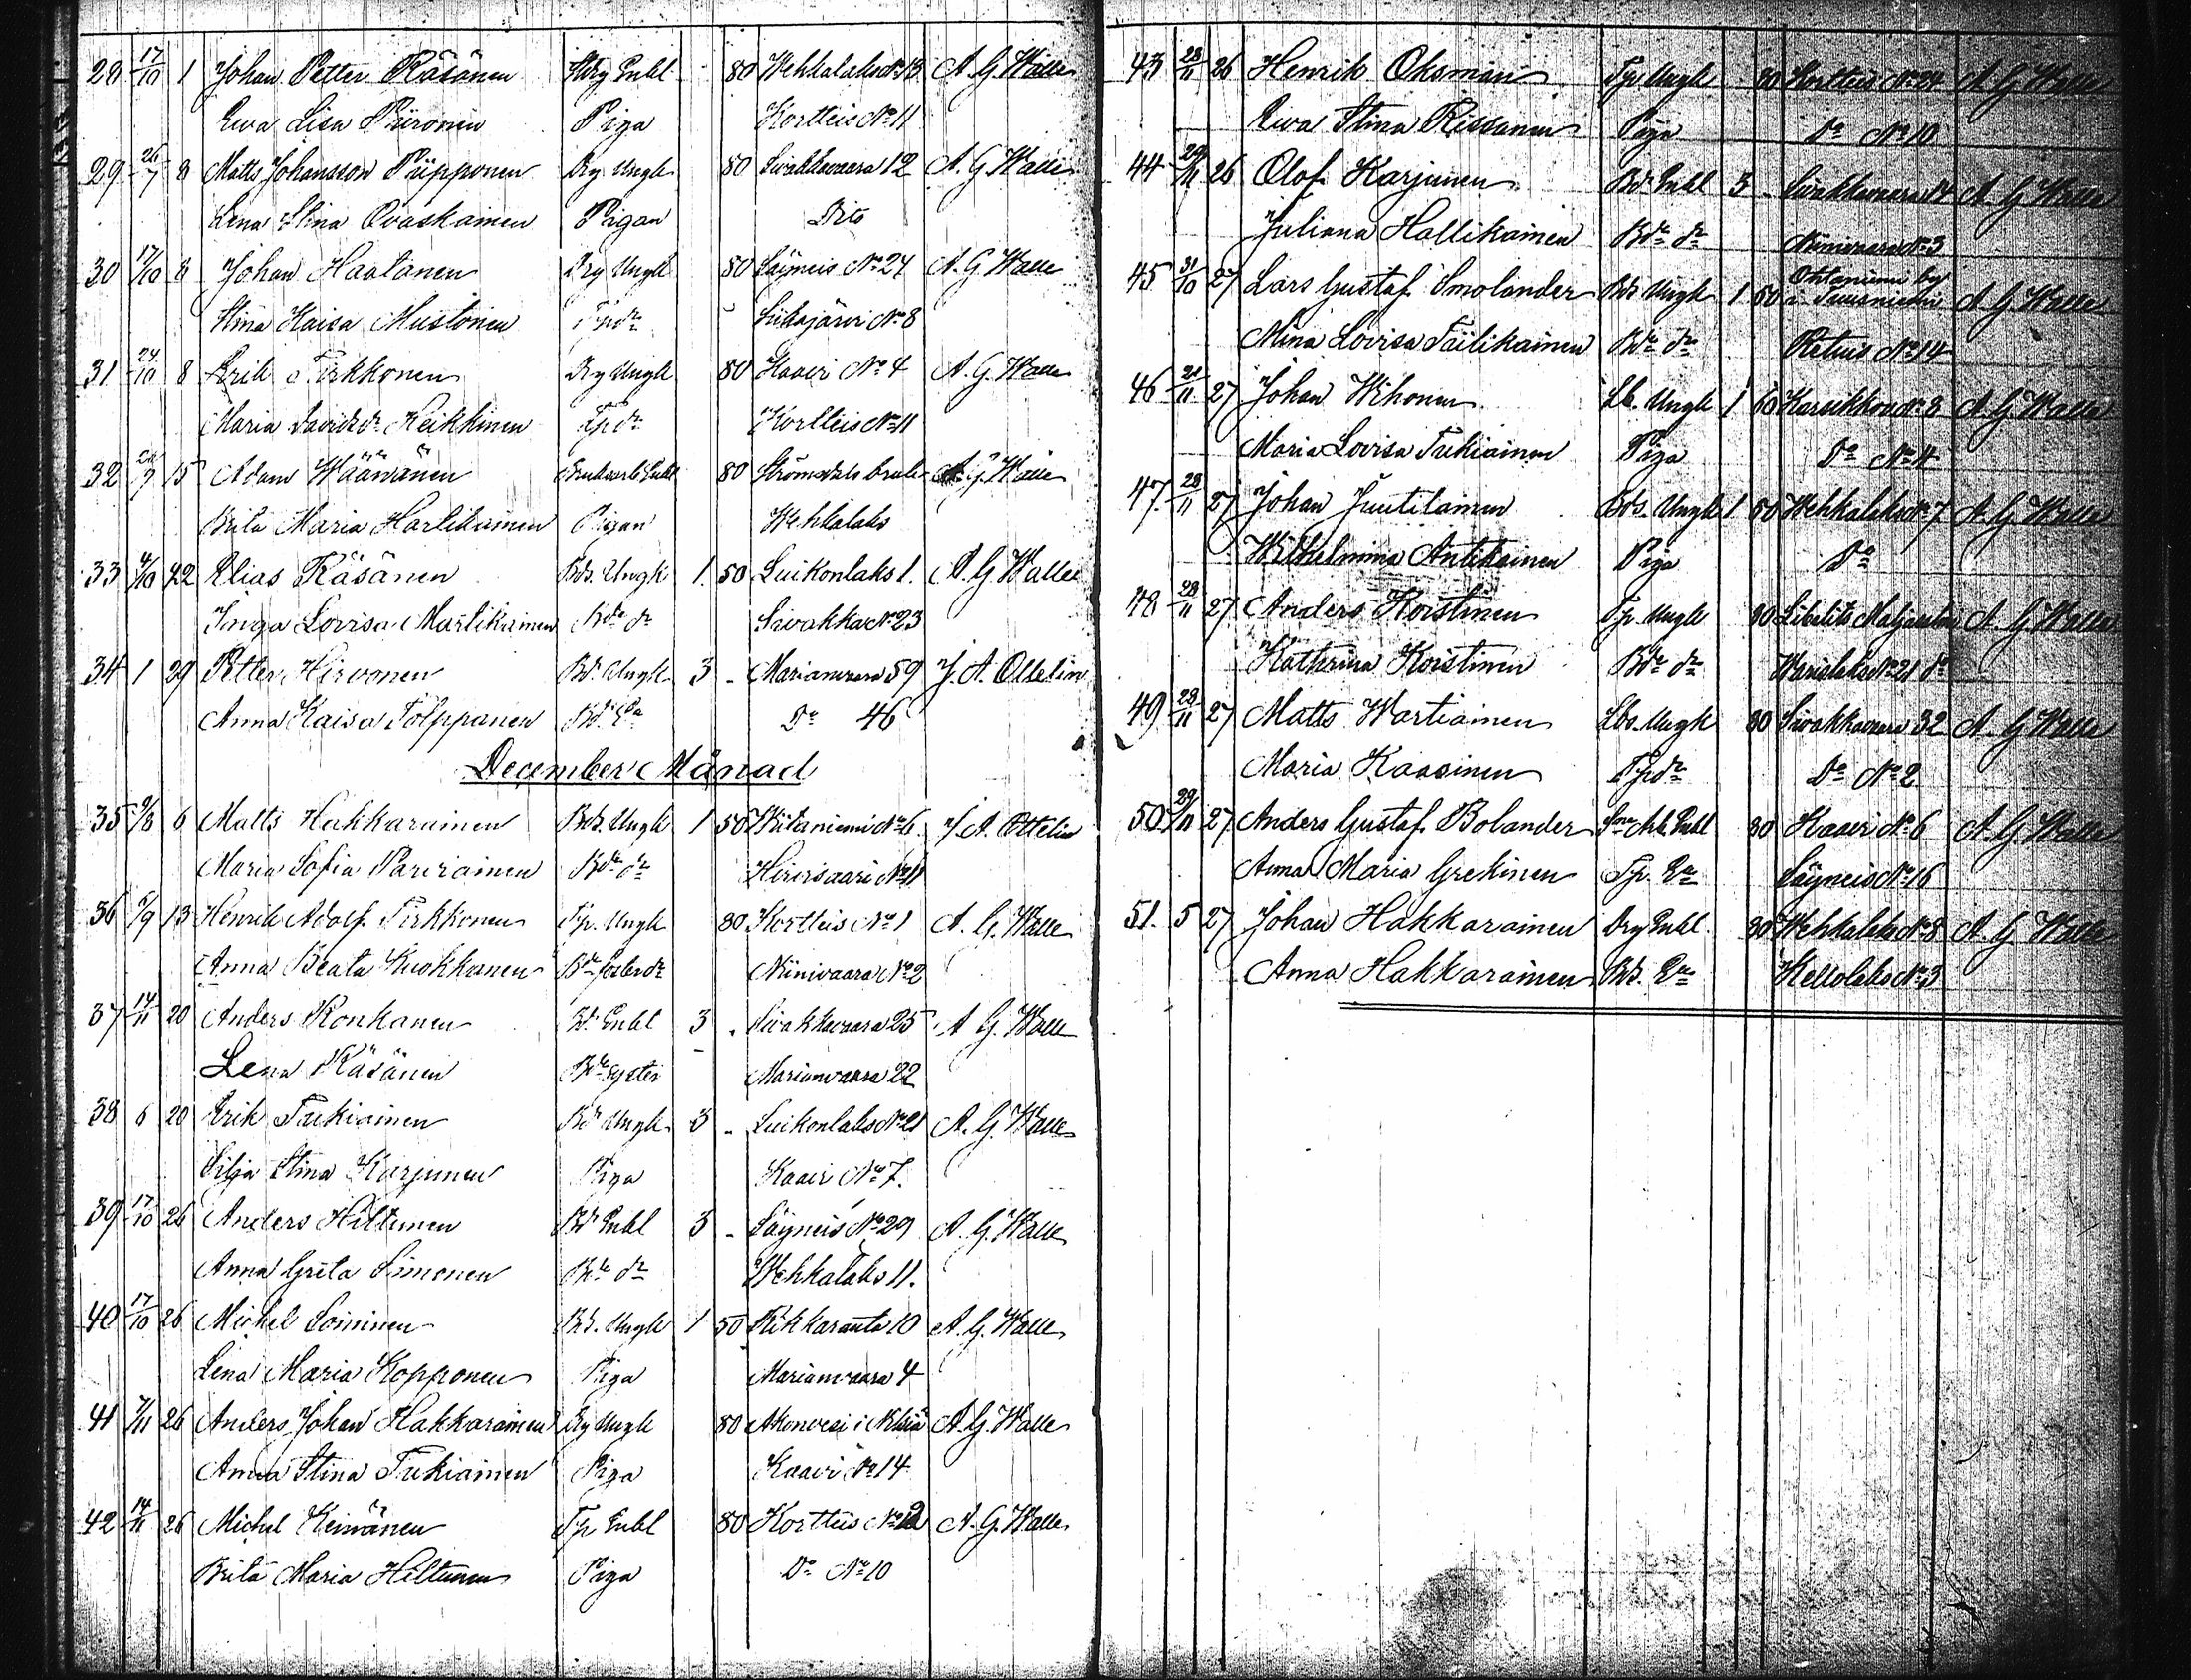 28 17/10 1 Johan Petter Räsänen Dry Enkl 80 Wehkalaks No 13 A. G. Walle
Ewa Lisa Piironen Piga Kortteis No 11
29 26/7 8 Matts Johansson Piipponen Dry Ungk 80 Siwakkavaara 12 A. G. Walle
Lena Stina Ovaskainen Pigan Dito
30 17/10 8 Johan Haatanen Dry Ungk 80 Säyneis No 24 A. G. Walle
Stina Kaisa Mustonen Tpdr Siikajärvi No 8
31 24/10 8 Erik Tirkkonen Dry Ungk 80 Kaavi No 4 A. G. Walle
Maria Davidsdr Keikkinen Tpdr Kortteis No 11
32 15 Adam Wäänänen Enkl 80 Strömsdals bruk A. G. Walle
Brita Maria Hartikainen Pigan Wehkalaks
33 4/10 22 Elias Räsänen Bds. Ungk 1. 50 Luikonlaks 1. A. G. Walle
Inga Lovisa Martikainen Bde dr Siwakka No 23
34 1 29 Petter Hirvonen Bd. Ungk 3 - Marianvaara 59 J. A. Ottelin
Anna Kaisa Tolppanen Bd. Ea Do 46
December Månad
35 9/8 6 Matts Hakkarainen Bds. Ungk 1 50 Niitaniemi No 6 J. A. Ottelin
Maria Sofia Parviainen Bde dr Hirvisaari No 11
36 5/9 13 Henrik Adolf Tirkkonen Tp. Ungk 80 Kortteis No 1 A. G. Walle
Anna Beata Kuokkanen Bde fosterdr Niinivaara No 2
37 14/11 20 Anders Konkanen Bd. Enkl 3 - Siwakkavaara 25 A. G. Walle
Lena Räsänen Bde syster Marianvaara 22
38 6 20 Erik Tukiainen Bd Ungk 3 - Luikonlaks No 21 A. G. Walle
Silja Stina Karjunen Piga Kaavi No 7.
39 17/10 26 Anders Hiltunen Bd Enkl 3 - Säyneis No 29 A. G. Walle
Anna Greta Simonen Bde dr Wehkalaks 11.
40 17/10 26 Michel Soininen Bds. Ungk 1 50 Rikkaranta 10 A. G. Walle
Lena Maria Kopponen Piga Marianvaara 4
41 7/11 26 Anders Johan Hakkarainen Dry Ungk 80 Akonvesi i Nilsiä A. G. Walle
Anna Stina Tukiainen Piga Kaavi No 14
42 14/11 26 Michel Keinänen Tp Enkl 80 Kortteis A. G. Walle
Brita Maria Hiltunen Piga Do No 10
43 28/11 26 Henrik Oksman Tp. Ungk 80 Kortteis No 24 A. G. Walle
Ewa Stina Rissanen Piga Do No 10
44 26 Olof Karjunen Bd. Enkl 3 - Siwakkavaara 14 A. G. Walle
Juliana Hallikainen Bde dr Niinivaara No 3
45 31/10 27 Lars Gustaf Smolander Bds Ungk 1 50 Ohtaniemi by i Tuusniemi A. G. Walle
Mina Lovisa Tiilikainen Bde dr Retuis No 14
46 21/11 27 Johan Wihonen Lb. Ungk 1 60 No 8 A. G. Walle
Maria Lovisa Tukiainen Piga Do No 4
47. 28/11 27 Johan Juutilainen Bds. Ungk 1 50 Wehkalaks No 7 A. G. Walle
Wilhelmina Antikainen Piga Do
48 28/11 27 Anders Koistinen Tp. Ungk 80 Libelits A. G. Walle
Kathrina Koistinen Bde dr No 21 do
49 28/11 27 Matts Wartiainen Lbs. Ungk 80 Siwakkavaara 32 A. G. Walle
Maria Kaasinen Tpdr Do No 2
50 29/11 27 Anders Gustaf Bolander Enkl 80 Kaavi No 6 A. G. Walle
Anna Maria Grekinen Tp. Ea Säyneis No 16
51. 5 27 Johan Hakkarainen Dry Enkl. 80 Wehkalaks No 8 A. G. Walle
Anna Hakkarainen Bds. Ea Kellolaks No 3